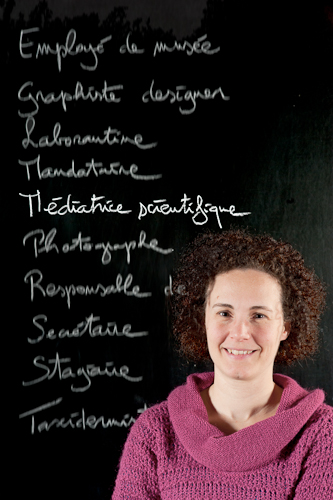 Employé de musée
Graphiste designer
Laborantine
Mandataire
Médiatrice scientifique
Photographe
Responsable de
Secrétaire
Stagiaire
Taxidermist